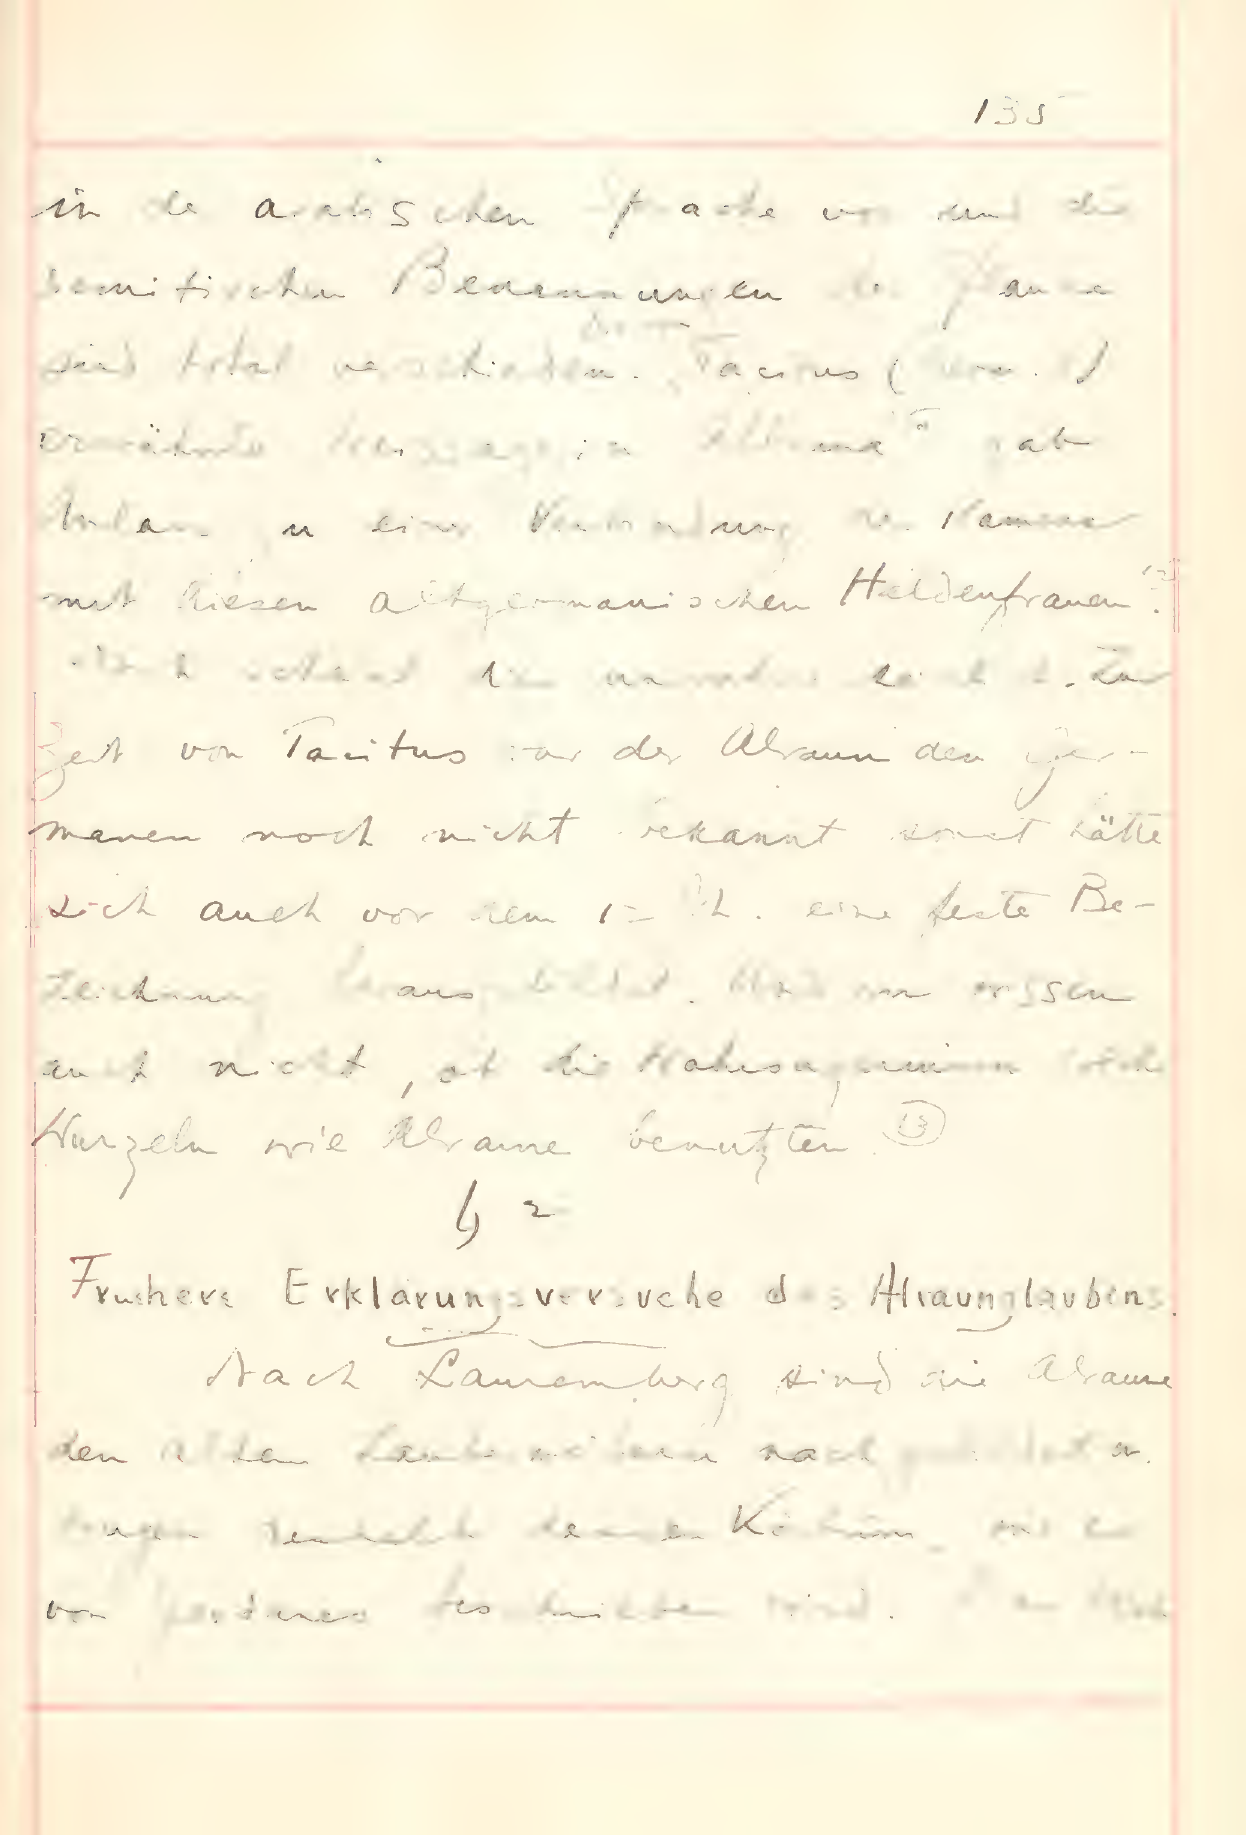 135
in der arabischen Sprache vor und die
semitischen Benennungen der Pflanze
sind total verschieden. Tacitus (Germ. 8)
erwähnte gab
Anlass zu einer Verbindung der Namen
mit diesen altgermanischen Heldenfrauen 12.
Doch scheint dies Zur
Zeit von Tacitus war der Alraun den Ger-
manen noch nicht bekannt sonst hätte
sich auch vor dem 12 Jh. eine feste Be-
zeichnung herausgebildet. Und wir wissen
auch nicht, ob die Wahrsagerinnen solche
Wurzeln wie Alraune benutzten (13)
§ 2
Frühere Erklärungsversuche des Alraunglaubens.
Nach Lauremberg sind die Alraune
den alten nachgebildet u.
tragen denselben Kostüm, wie es
von beschrieben wird.